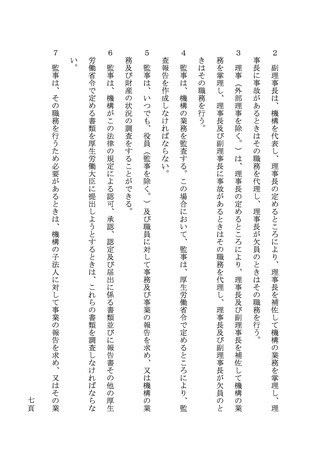 ２　副理事長は、機構を代表し、理事長の定めるところにより、理事長を補佐して機構の業務を掌理し、理
事長に事故があるときはその職務を代理し、理事長が欠員のときはその職務を行う。
３　理事（外部理事を除く。）は、理事長の定めるところにより、理事長及び副理事長を補佐して機構の業
務を掌理し、理事長及び副理事長に事故があるときはその職務を代理し、理事長及び副理事長が欠員のと
きはその職務を行う。
４　監事は、機構の業務を監査する。この場合において、監事は、厚生労働省令で定めるところにより、監
査報告を作成しなければならない。
５　監事は、いつでも、役員（監事を除く。）及び職員に対して事務及び事業の報告を求め、又は機構の業
務及び財産の状況の調査をすることができる。
６　監事は、機構がこの法律の規定による認可、承認、認定及び届出に係る書類並びに報告書その他の厚生
労働省令で定める書類を厚生労働大臣に提出しようとするときは、これらの書類を調査しなければならな
い。
７　監事は、その職務を行うため必要があるときは、機構の子法人に対して事業の報告を求め、又はその業
七頁